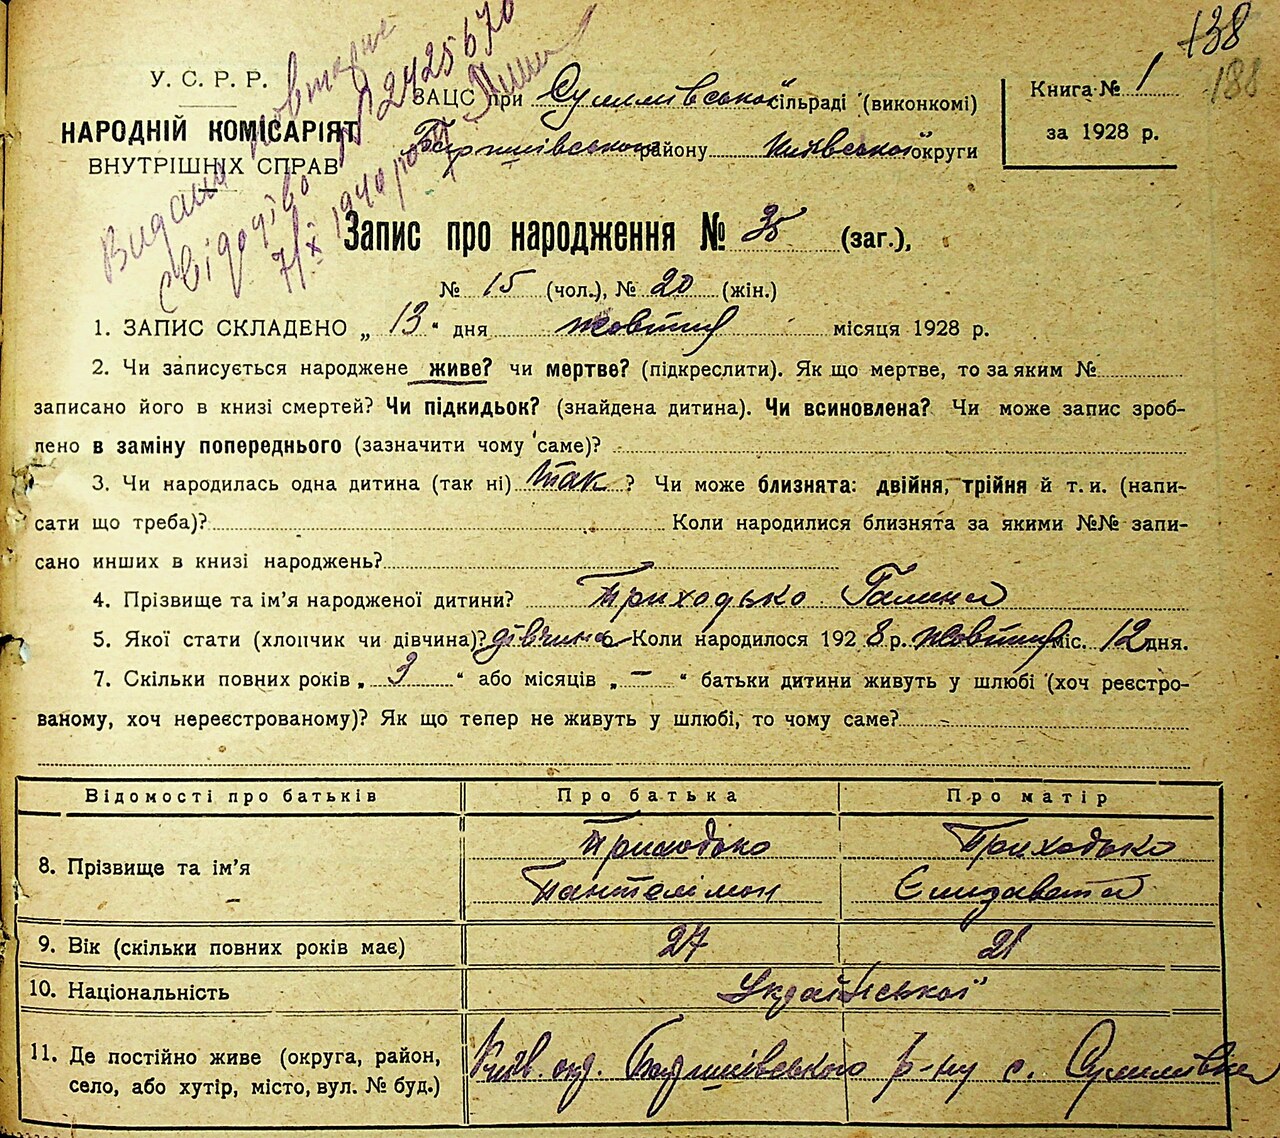 138
188
У. С. Р. Р.
НАРОДНІЙ КОМІСАРІЯТ
ВНУТРІШНІХ СПРАВ
Видана повторне
свідоцтво № 2425670
7/X 1940 року
ЗАЦС при Сулимівської сільраді (виконкомі)
Баришівського району Київської округи
Книга № 1
за 1928 р.
Запис про народження № 35 (заг.),
№ 15 (чол.), № 20 (жін.)
1. ЗАПИС СКЛАДЕНО „ 13 “ дня жовтня місяця 1928 р.
2. Чи записується народжене живе? чи мертве? (підкреслити). Як що мертве, то за яким №
записано його в книзі смертей? Чи підкидьок? (знайдена дитина). Чи всиновлена? Чи може запис зроб-
лено в заміну попереднього (зазначити чому саме)?
3. Чи народилась одна дитина (так ні) так ? Чи може близнята: двійня, трійня й т. и. (напи-
сати що треба)? Коли народилися близнята за якими №№ запи-
сано инших в книзі народжень?
4. Прізвище та ім’я народженої дитини? Приходько Галина
5. Якої стати (хлопчик чи дівчина)? дівчина Коли народилося 192 8 р. жовтня міс. 12 дня.
7. Скільки повних років „ 3 “ або місяців „ – “ батьки дитини живуть у шлюбі (хоч реєстро-
ваному, хоч нереєстрованому)? Як що тепер не живуть у шлюбі, то чому саме?
Відомості про батьків Про батька Про матір
8. Прізвище та ім’я Приходько Пантелімон Приходько Єлизавета
9. Вік (скільки повних років має) 27 21
10. Національність Української
11. Де постійно живе (округа, район, село, або хутір, місто, вул. № буд.) Київ. окр. Баришівського р-ну с. Сулимівка